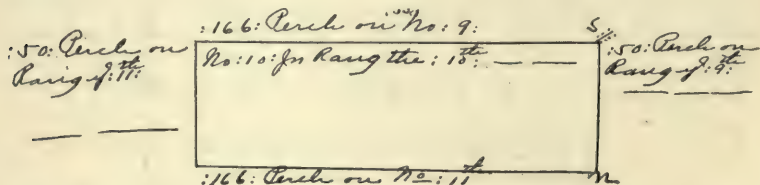 :166: Perch on No: 9:
S
:50: Perch on
Rang ye: 11th:
No: 10: In Rang the: 10th:
:50: Perch on
Rang ye: 9th:
:166: Perch on No: 11th
N